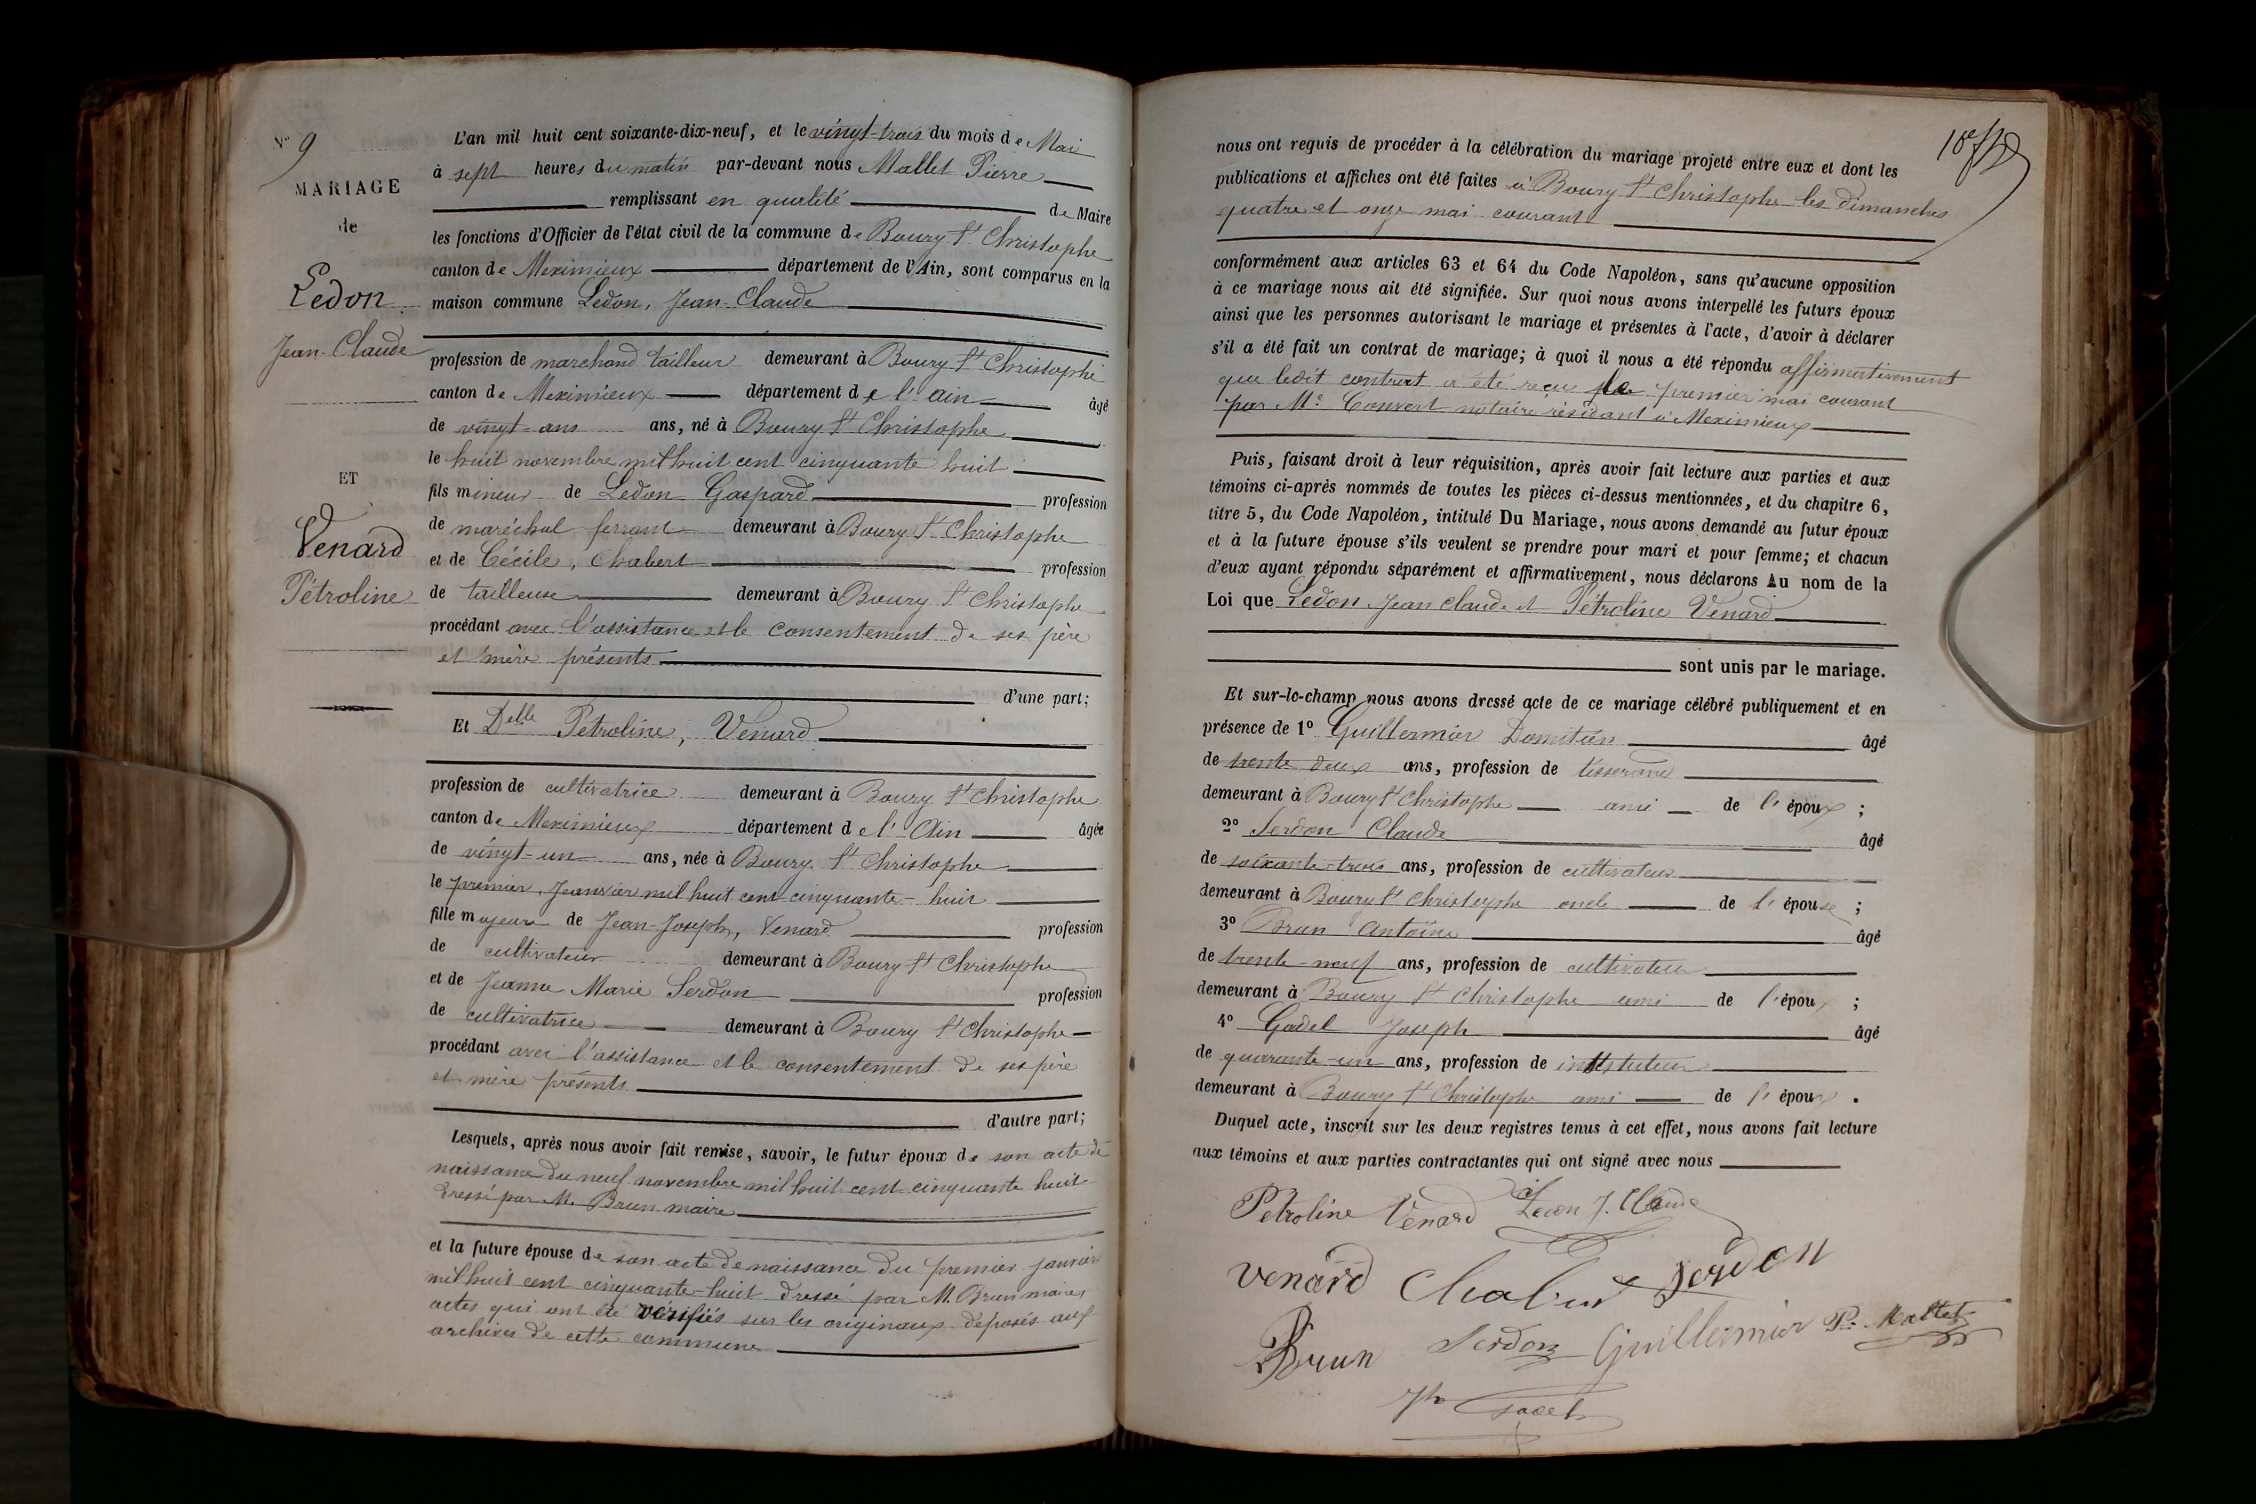 N° 9
MARIAGE
de
Ledon
Jean-Claude
ET
Venard
Pétroline
L'an mil huit cent soixante-dix-neuf, et le vingt-trois du mois de Mai
à sept heures du matin par-devant nous Mallet Pierre
remplissant en qualité de Maire
les fonctions d'Officier de l'état civil de la commune de Bourg St Christophe
canton de Meximieux département de l'Ain, sont comparus en la
maison commune Ledon, Jean-Claude
profession de marchand tailleur demeurant à Bourg St Christophe
canton de Meximieux département de l'ain âgé
de vingt-ans ans, né à Bourg St Christophe
le huit novembre mil huit cent cinquante huit
fils mineur de Ledon Gaspard profession
de maréchal ferrant demeurant à Bourg St Christophe
et de Cécile, Chabert profession
de tailleuse demeurant à Bourg St Christophe
procédant avec l'assistance et le consentement de ses père
et mère présents
d'une part;
Et Delle Pétroline, Venard
profession de cultivatrice demeurant à Bourg St Christophe
canton de Meximieux département de l'Ain âgée
de vingt-un ans, née à Bourg St Christophe
le premier Janvier mil huit cent cinquante-huit
fille majeure de Jean-Joseph, Venard profession
de cultivateur demeurant à Bourg St Christophe
et de Jeanne Marie Serdon profession
de cultivatrice demeurant à Bourg St Christophe
procédant avec l'assistance et le consentement de ses père
et mère présents
d'autre part;
Lesquels, après nous avoir fait remise, savoir, le futur époux de son acte de
naissance du neuf novembre mil huit cent cinquante huit
dressé par M. Brun maire
et la future épouse de son acte de naissance du premier janvier
mil huit cent cinquante-huit dressé par M. Brun maire,
actes qui ont été vérifiés sur les originaux déposés aux
archives de cette commune
nous ont requis de procéder à la célébration du mariage projeté entre eux et dont les
publications et affiches ont été faites à Bourg St Christophe les dimanches
quatre et onze mai courant
conformément aux articles 63 et 64 du Code Napoléon, sans qu'aucune opposition
à ce mariage nous ait été signifiée. Sur quoi nous avons interpellé les futurs époux
ainsi que les personnes autorisant le mariage et présentes à l'acte, d'avoir à déclarer
s'il a été fait un contrat de mariage; à quoi il nous a été répondu affirmativement
que ledit contrat a été reçu le premier mai courant
par Me Convert notaire résidant à Meximieux
Puis, faisant droit à leur réquisition, après avoir fait lecture aux parties et aux
témoins ci-après nommés de toutes les pièces ci-dessus mentionnées, et du chapitre 6,
titre 5, du Code Napoléon, intitulé Du Mariage, nous avons demandé au futur époux
et à la future épouse s'ils veulent se prendre pour mari et pour femme; et chacun
d'eux ayant répondu séparément et affirmativement, nous déclarons Au nom de la
Loi que Ledon Jean Claude et Pétroline Venard
sont unis par le mariage.
Et sur-le-champ nous avons dressé acte de ce mariage célébré publiquement et en
présence de 1° Guillermier Domitien âgé
de trente deux ans, profession de tisserand
demeurant à Bourg St Christophe ami de l'époux ;
2° Serdon Claude âgé
de soixante-trois ans, profession de cultivateur
demeurant à Bourg St Christophe oncle de l'épouse ;
3° Brun Antoine âgé
de trente-neuf ans, profession de cultivateur
demeurant à Bourg St Christophe ami de l'époux ;
4° Gadel Joseph âgé
de quarante-un ans, profession de instituteur
demeurant à Bourg St Christophe ami de l'époux .
Duquel acte, inscrit sur les deux registres tenus à cet effet, nous avons fait lecture
aux témoins et aux parties contractantes qui ont signé avec nous
Pétroline Venard Ledon J. Claude
Venard Chabert Serdon
Brun Serdon Guillermier P. Mallet
Jh Gadel